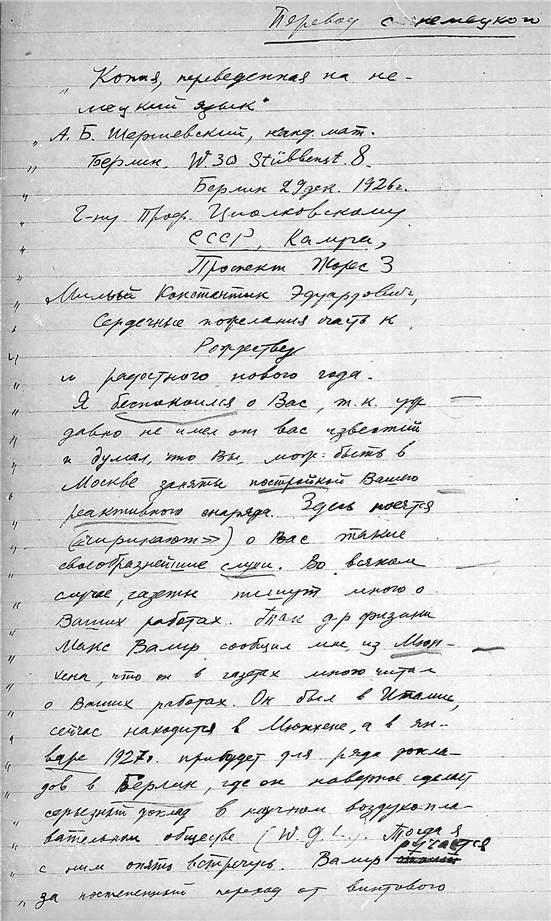 Перевод с немецкого
„Копия, переведенная на не-
мецкий язык“
„ А. Б. Шершевский, канд. мат.
„ Берлин. W 30 Stübbenst. 8.
„ Берлин 29 дек. 1926 г.
„ Г-ну Проф. Циолковскому
„ СССР, Калуга,
„ Проспект Жорес 3
Милый Константин Эдуардович,
„ Сердечные пожелания счастья к
„ Рождеству
„ и радостного нового года.
„ Я беспокоился о Вас, т.к. уже
„ давно не имел от вас известий
„ и думал, что Вы, мож: быть в
„ Москве заняты постройкой Вашего
„ реактивного снаряда. Здесь поются
„ («чирикают») о Вас такие
„ своеобразнейшие слухи. Во всяком
„ случае, газеты пишут много о
„ Ваших работах. Так д-р физики
„ Макс Валир сообщил мне из Мюн-
„ хена, что он в газетах много читал
„ о Ваших работах. Он был в Италии,
„ сейчас находится в Мюнхене, а в ян-
„ варе 1927 г. прибудет для ряда докла-
„ дов в Берлин, где он наверное сделает
„ серьезный доклад в научном воздухопла-
„ вательном обществе (W. G. L.). Тогда я
„ с ним опять встречусь. Валир ручается
„ за постепенный переход от винтового